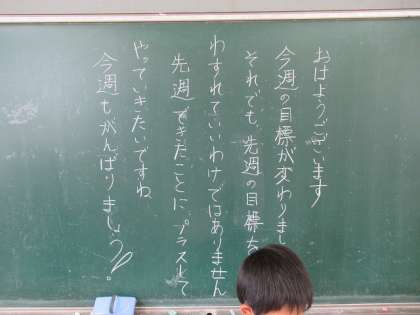 おはようございます
今週の目標が変わりまし
それでも、先週の目標を
わすれていいわけではありません
先週できたことにプラスして
やっていきたいですね
今週もがんばりましょう!